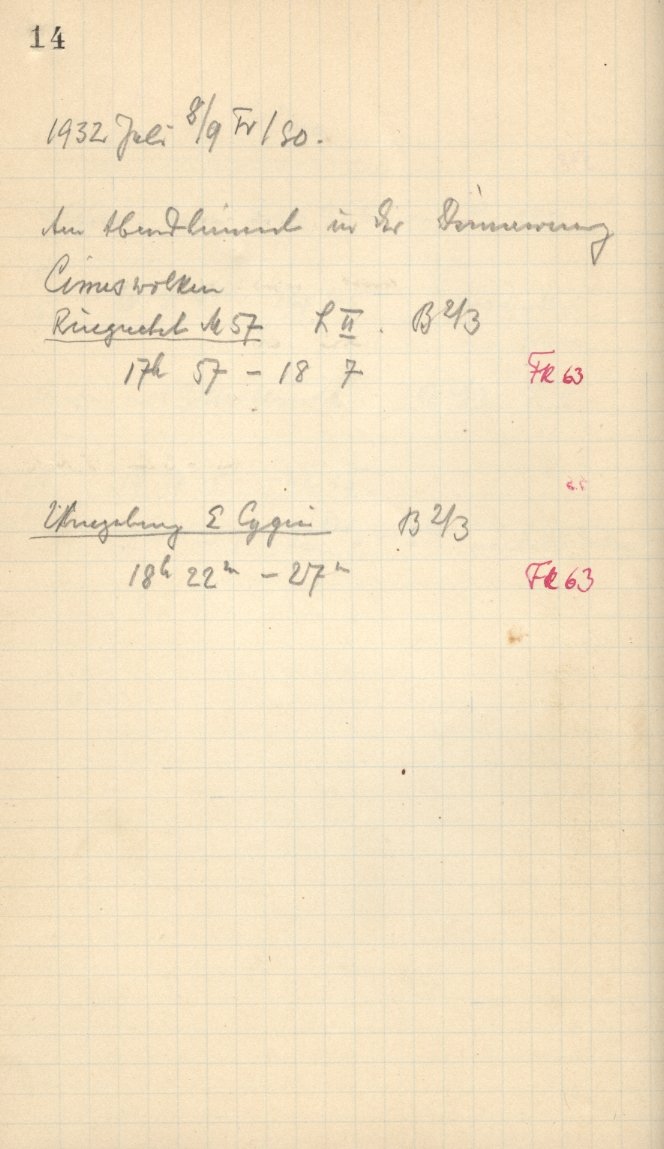 14
1932 Juli 8/9 Fr/So.
Am Abendhimmel in der Dämmerung
Cirruswolken
Ringnebel M 57 L II . B 2/3
17h 57 - 18 7 FR 63
Umgebung ε Cygni B 2/3
18h 22m - 27m FR 63